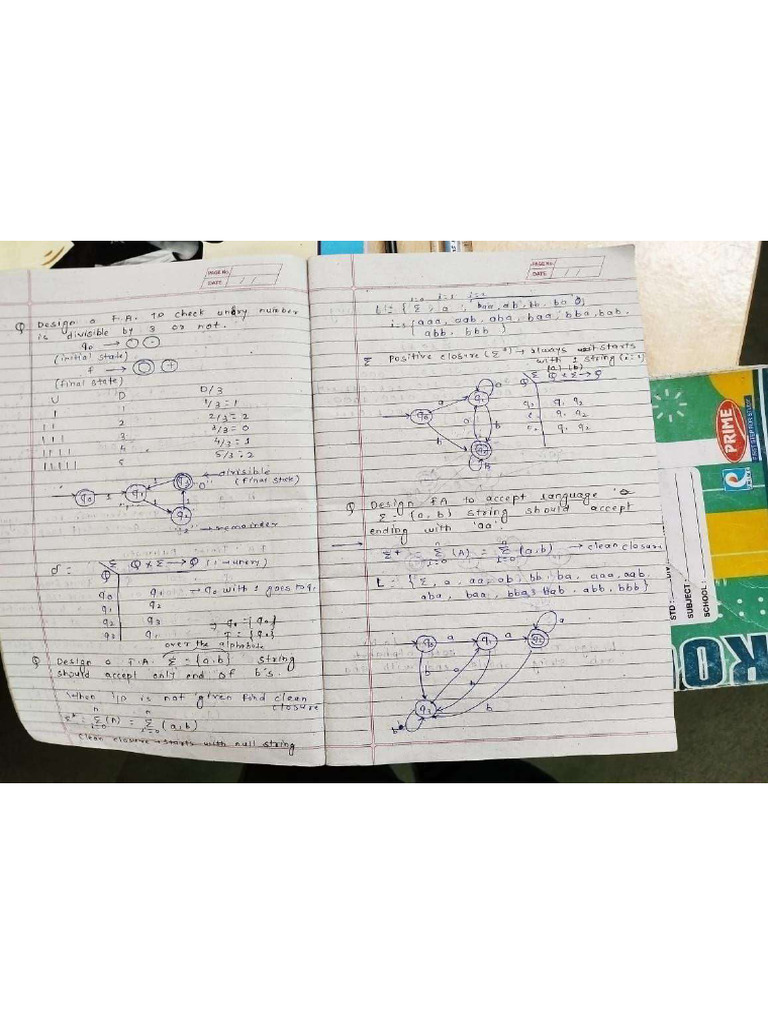 PAGE NO.
DATE / /
Q Design a F.A. to check unary number
is divisible by 3 or not.
q0 →
(initial state)
f →
(final state)
U D D/3
1 1 1/3 = 1
11 2 2/3 = 2
111 3 3/3 = 0
1111 4 4/3 = 1
11111 5 5/3 = 2
← divisible
(final state)
q0 1 q1 1 q3 "0"
q2
"2" → remainder
δ = Σ Q × Σ → Q (1 unary)
Q
q0 q1 → q0 with 1 goes to q1
q1 q2
q2 q3 → q0 = {q0}
q3 q1
over the alphabate
Q Design a F.A. Σ = {a,b} string
should accept only end of b's.
When I/P is not given find clean
closure
n n
Σ* = Σ (A) = Σ (a,b)
i=0 i=0
Clean closure → starts with null string
PAGE NO.
DATE / /
i=0 i=1
i=3 {aaa, aab, aba, baa, bba, bab,
abb, bbb }
Positive closure (Σ+) → always starts
with 1 string (i=1)
(a) (b)
Σ Q × Σ → Q
Q
q1 q2
q1 q2
q1 q2
q0 a q1 a
b a b
q2
b
Q Design FA to accept language
Σ = {a,b} string should accept
ending with 'aa'.
→ Σ+ = Σ (A) = Σ (a,b) → clean closure
i=0 i=0
L = {Σ, a, aa, ab, bb, ba, aaa, aab,
aba, baa, bba, bab, abb, bbb}
a
q0 a q1 a q2
b a b b
q3
b
PRIME
FIRST STEP FOR STUDY
STD :
DIV
SUBJECT
SCHOOL :